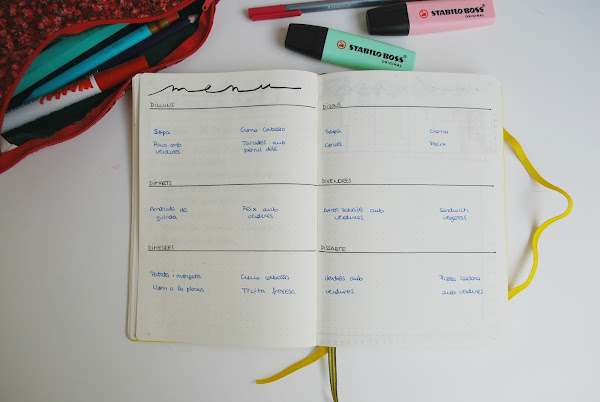 STABILO BOSS
ORIGINAL
STABILO BOSS
ORIGINAL
menu
DILLUNS
Sopa
Crema carbassó
Pavo amb
verdures
Torrades amb
pernil dolç
DIMARTS
Amanida de
quinoa
Peix amb
verdures
DIMECRES
Patata i mongeta
Crema carbassó
Llom a la planxa
Truita francesa
DIJOUS
Sopa
Crema
Peix
DIVENDRES
Arròs salvatge amb
verdures
Sandwich
vegetal
DISSABTE
amb
verdures
Pizza
amb verdures